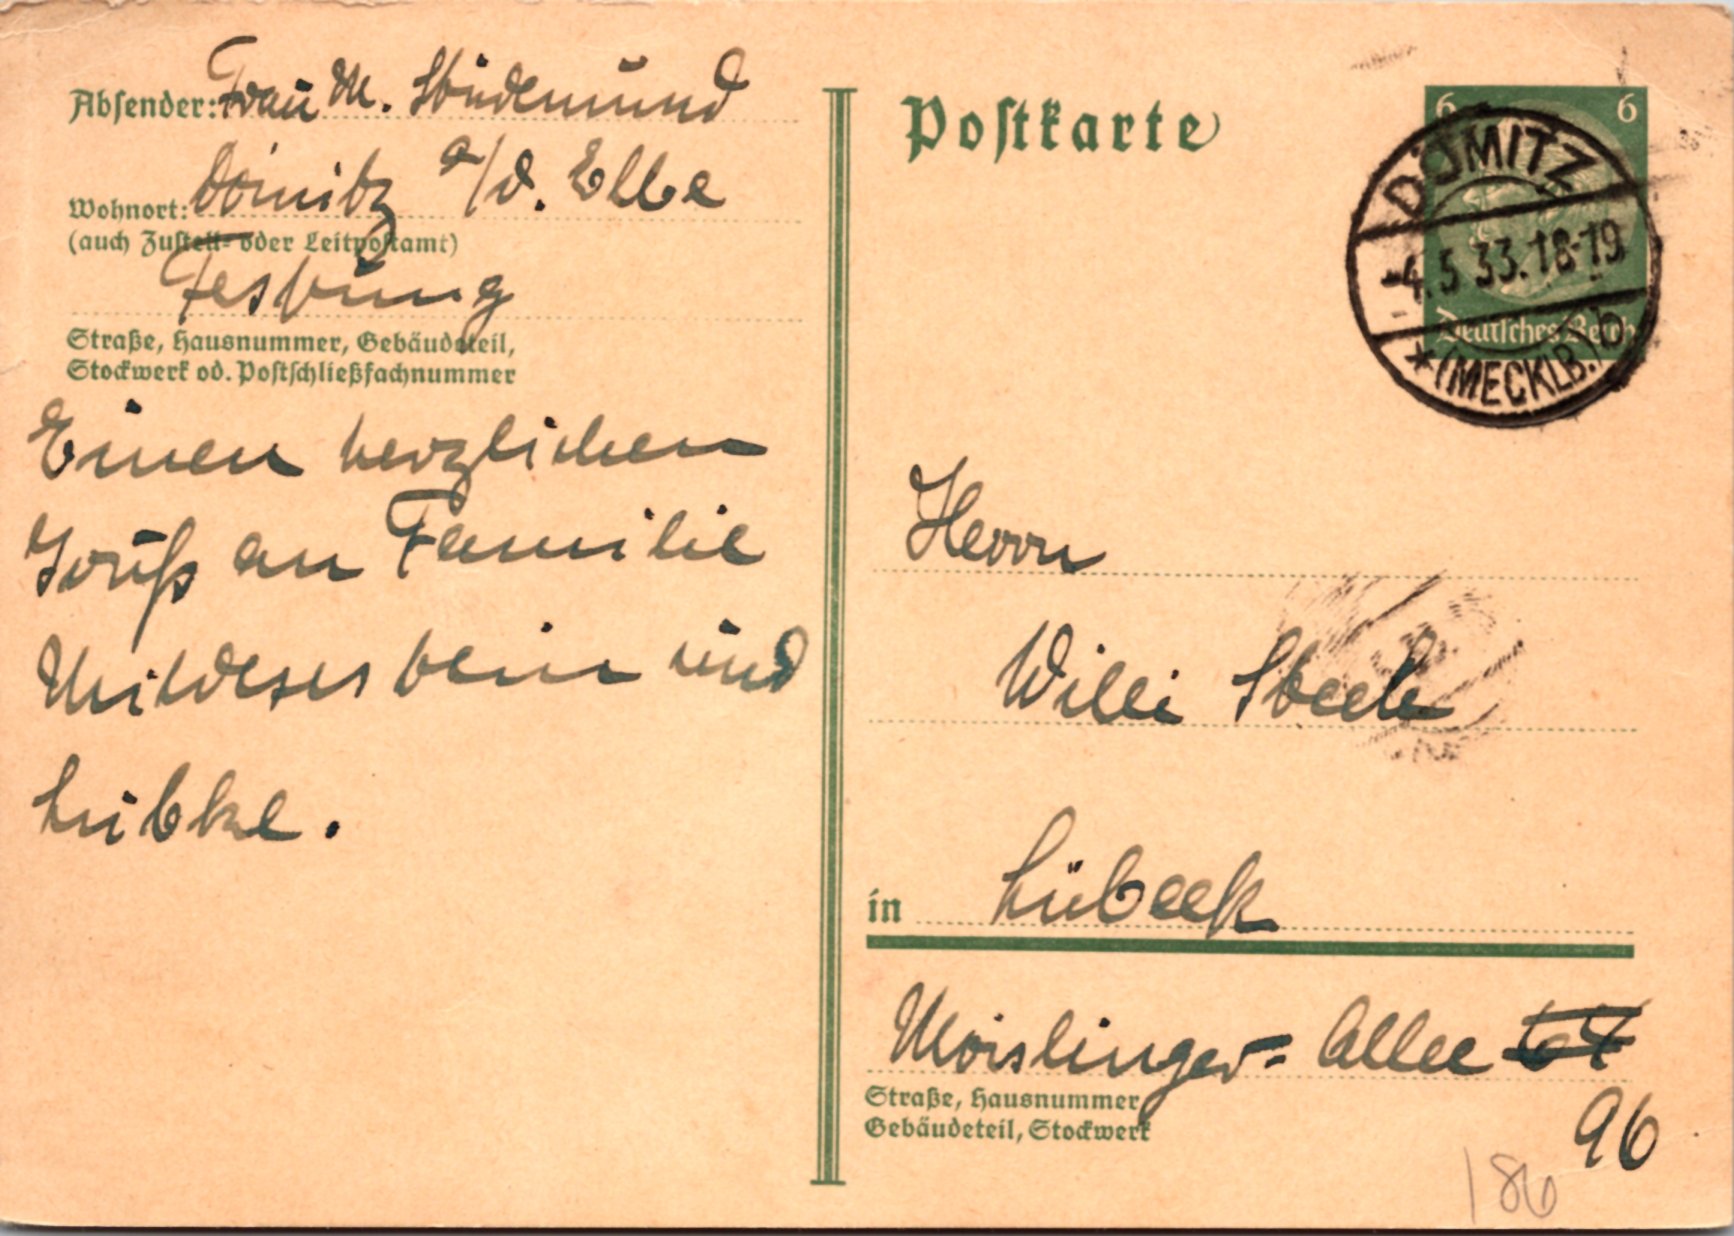 Absender: Frau M. Studemund
Wohnort: Dömitz a/d. Elbe
(auch Zustell- oder Leitpostamt)
Festung
Straße, Hausnummer, Gebäudeteil,
Stockwerk od. Postschließfachnummer
Einen herzlichen
Gruß an Familie
und
Lübke.
Postkarte
6 6
Deutsches Reich
DÖMITZ
-4.5.33.18-19
* (MECKLB.) b
Herrn
Willi
in Lübeck
Moislinger= Allee
96
Straße, Hausnummer
Gebäudeteil, Stockwerk
186